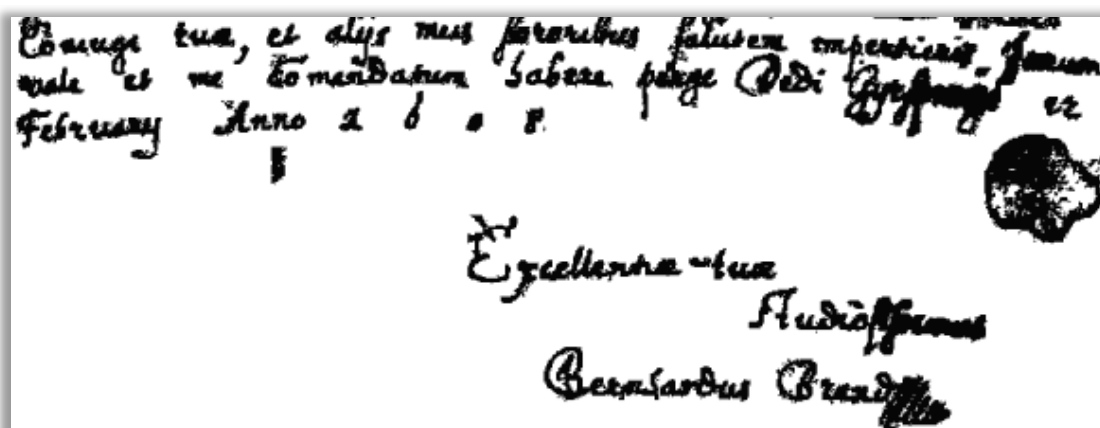 Coniugi tuæ, et alijs meis sororibus salutem impertieris
vale et me Comendatum habere perge Dedi
February Anno
Excellentiæ tuæ
Studiosissimus
Bernhardus Brand